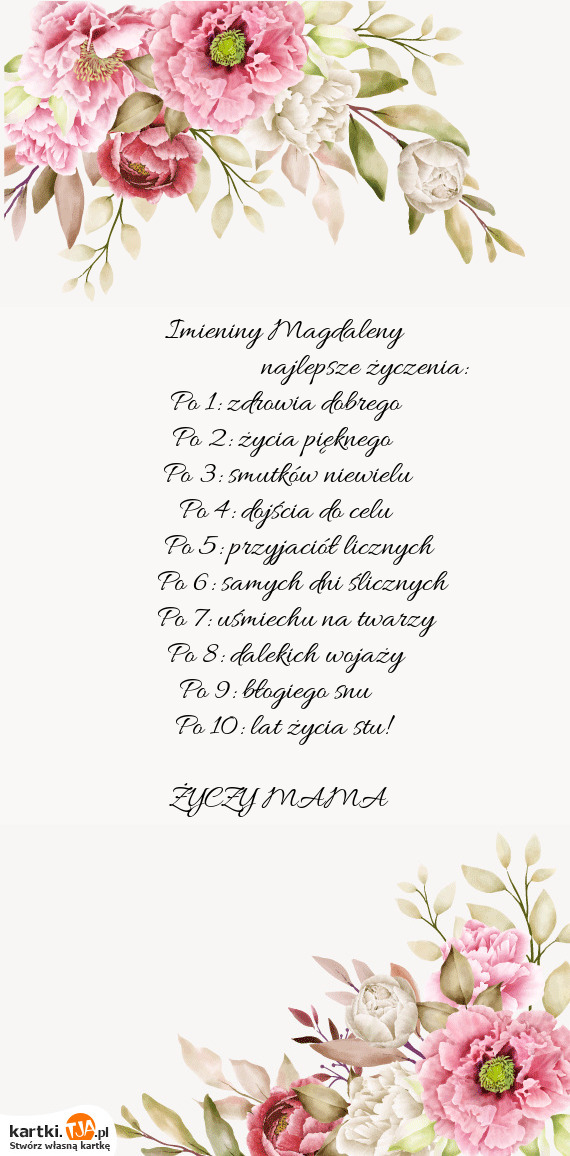 Imieniny Magdaleny
najlepsze życzenia:
Po 1: zdrowia dobrego
Po 2: życia pięknego
Po 3: smutków niewielu
Po 4: dojścia do celu
Po 5: przyjaciół licznych
Po 6: samych dni ślicznych
Po 7: uśmiechu na twarzy
Po 8: dalekich wojaży
Po 9: błogiego snu
Po 10: lat życia stu!
ŻYCZY MAMA
kartki.TJA.pl
Stwórz własną kartkę